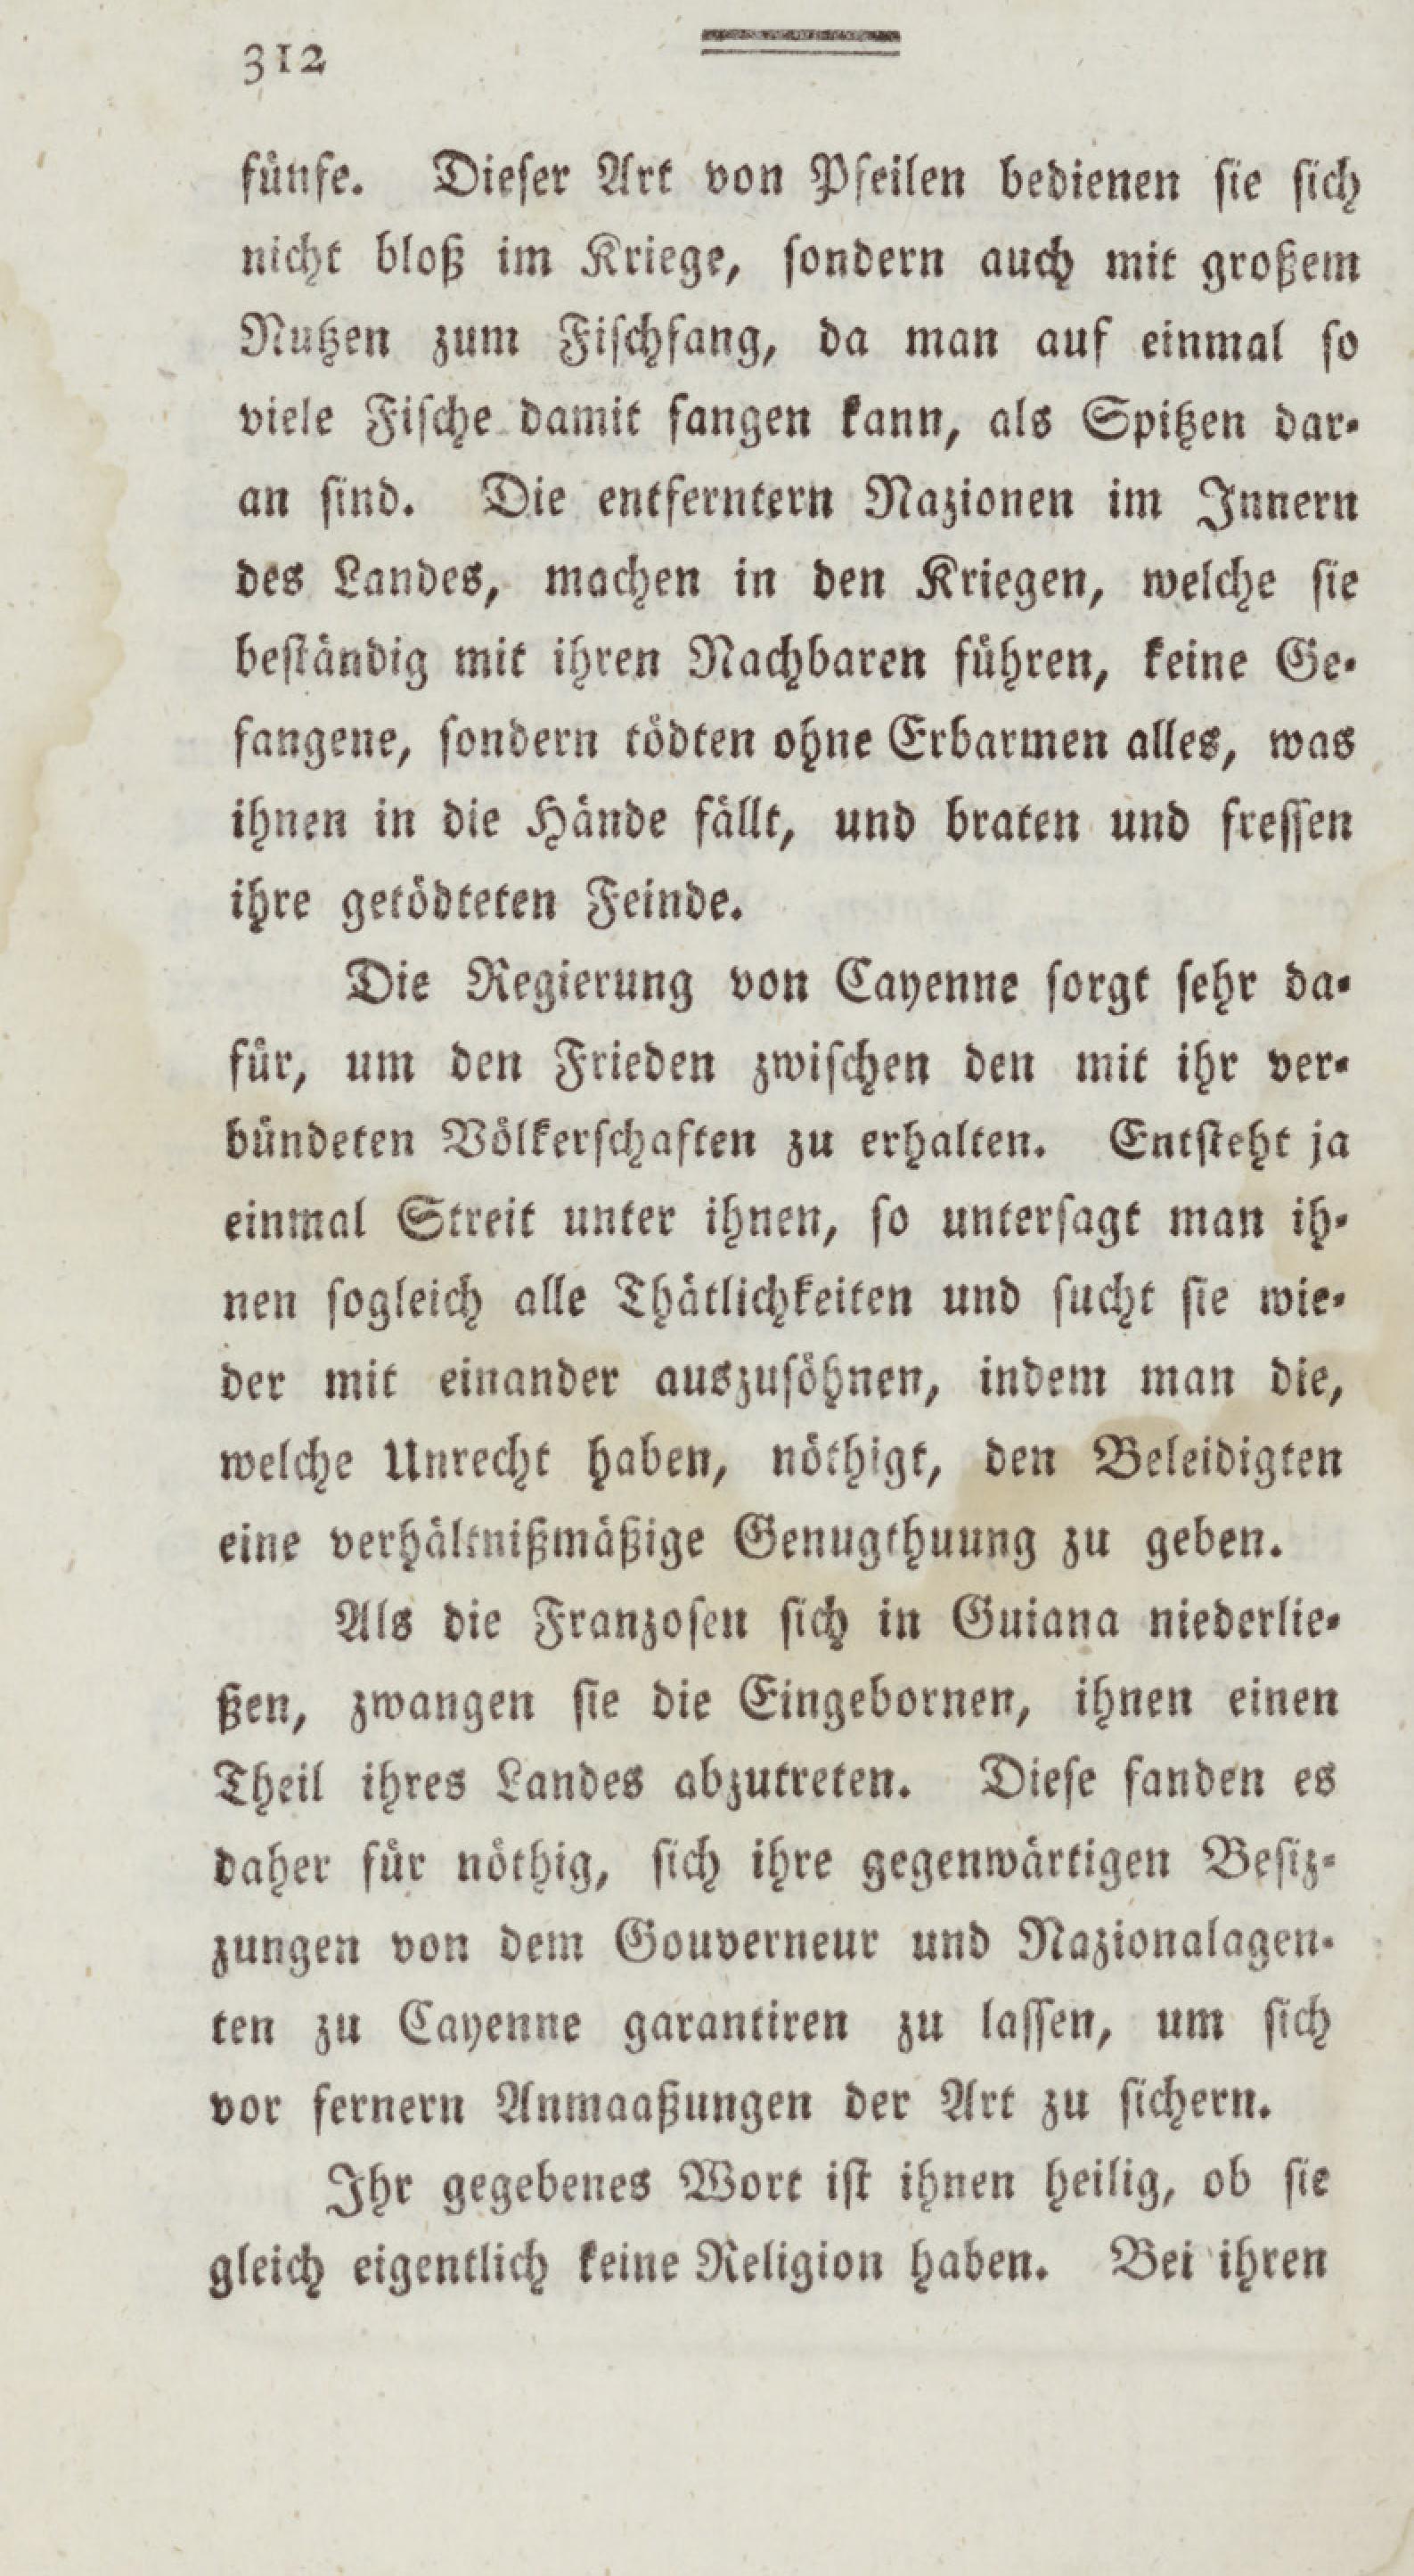 312
fünfe. Dieser Art von Pfeilen bedienen sie sich
nicht bloß im Kriege, sondern auch mit großem
Nutzen zum Fischfang, da man auf einmal so
viele Fische damit fangen kann, als Spitzen dar-
an sind. Die entferntern Nazionen im Innern
des Landes, machen in den Kriegen, welche sie
beständig mit ihren Nachbaren führen, keine Ge-
fangene, sondern tödten ohne Erbarmen alles, was
ihnen in die Hände fällt, und braten und fressen
ihre getödteten Feinde.
Die Regierung von Cayenne sorgt sehr da-
für, um den Frieden zwischen den mit ihr ver-
bündeten Völkerschaften zu erhalten. Entsteht ja
einmal Streit unter ihnen, so untersagt man ih-
nen sogleich alle Thätlichkeiten und sucht sie wie-
der mit einander auszusöhnen, indem man die,
welche Unrecht haben, nöthigt, den Beleidigten
eine verhältnißmäßige Genugthuung zu geben.
Als die Franzosen sich in Guiana niederlie-
ßen, zwangen sie die Eingebornen, ihnen einen
Theil ihres Landes abzutreten. Diese fanden es
daher für nöthig, sich ihre gegenwärtigen Besiz-
zungen von dem Gouverneur und Nazionalagen-
ten zu Cayenne garantiren zu lassen, um sich
vor fernern Anmaaßungen der Art zu sichern.
Ihr gegebenes Wort ist ihnen heilig, ob sie
gleich eigentlich keine Religion haben. Bei ihren